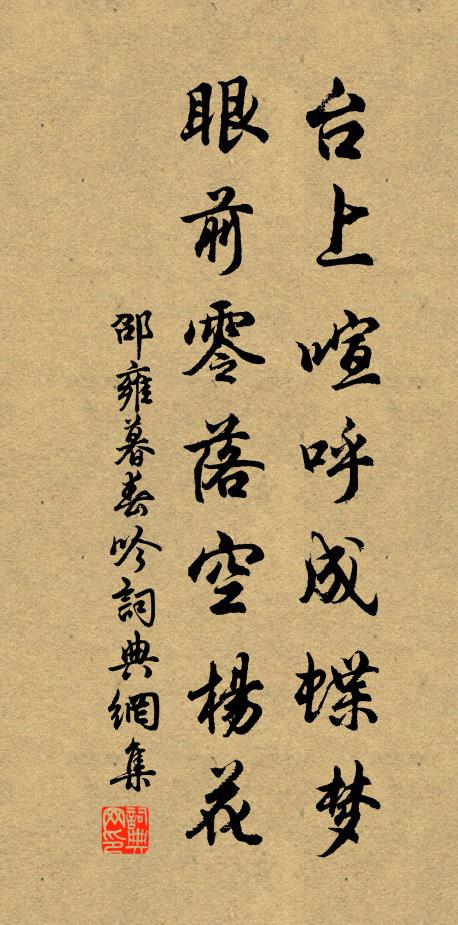 台上喧呼成蝶梦
眼前零落空楊花
邵雍暮春吟詞典網集
詞典网印